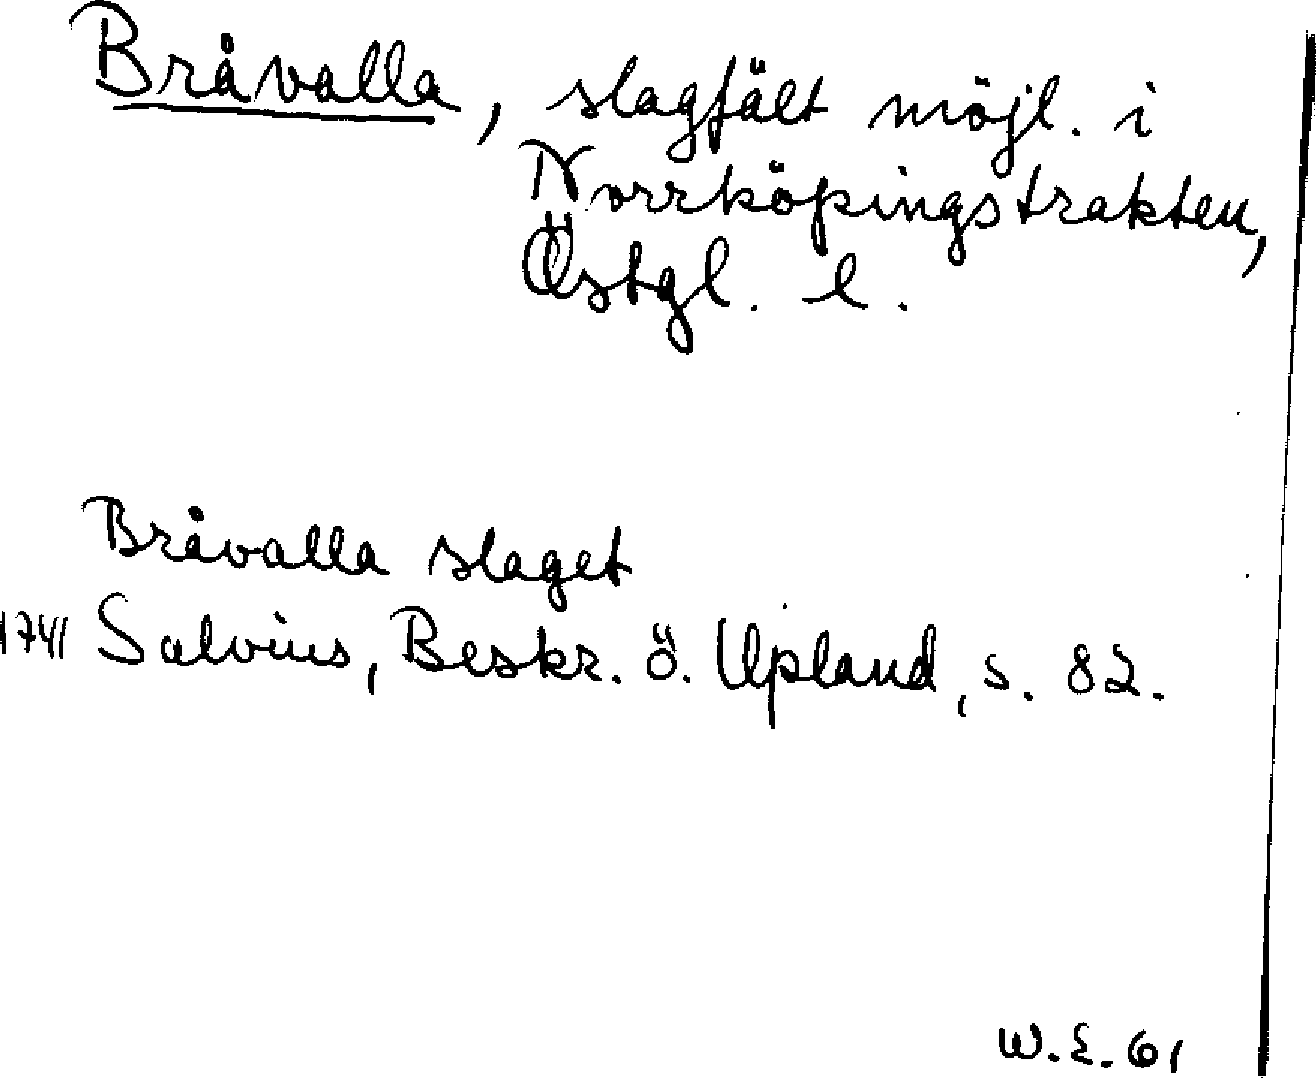 Bråvalla, slagfält möjl. i
Norrköpingstrakten,
Östgl. l.
Bråvalla slaget
1741 Salvius, Beskr. ö. Upland, s. 82.
W.E. 61